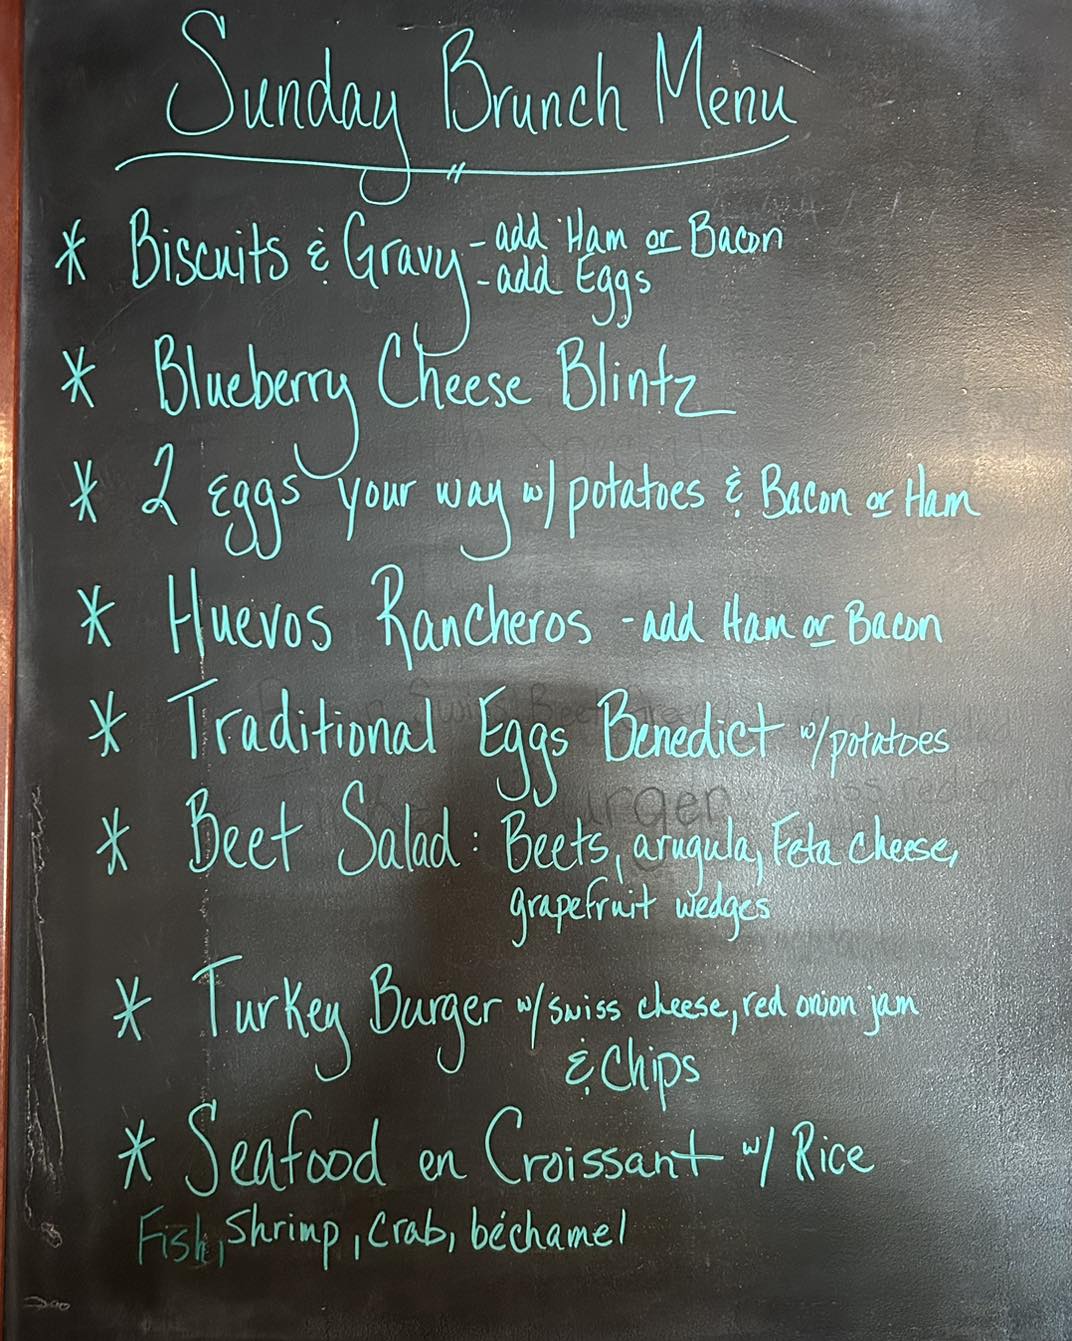 Sunday Brunch Menu
* Biscuits & Gravy - add Ham or Bacon
- add Eggs
* Blueberry Cheese Blintz
* 2 Eggs your way w/ potatoes & Bacon or Ham
* Huevos Rancheros - add Ham or Bacon
* Traditional Eggs Benedict w/ potatoes
* Beet Salad : Beets, arugula, Feta cheese,
grapefruit wedges
* Turkey Burger w/ swiss cheese, red onion jam
& Chips
* Seafood en Croissant w/ Rice
Fish, Shrimp, Crab, béchamel